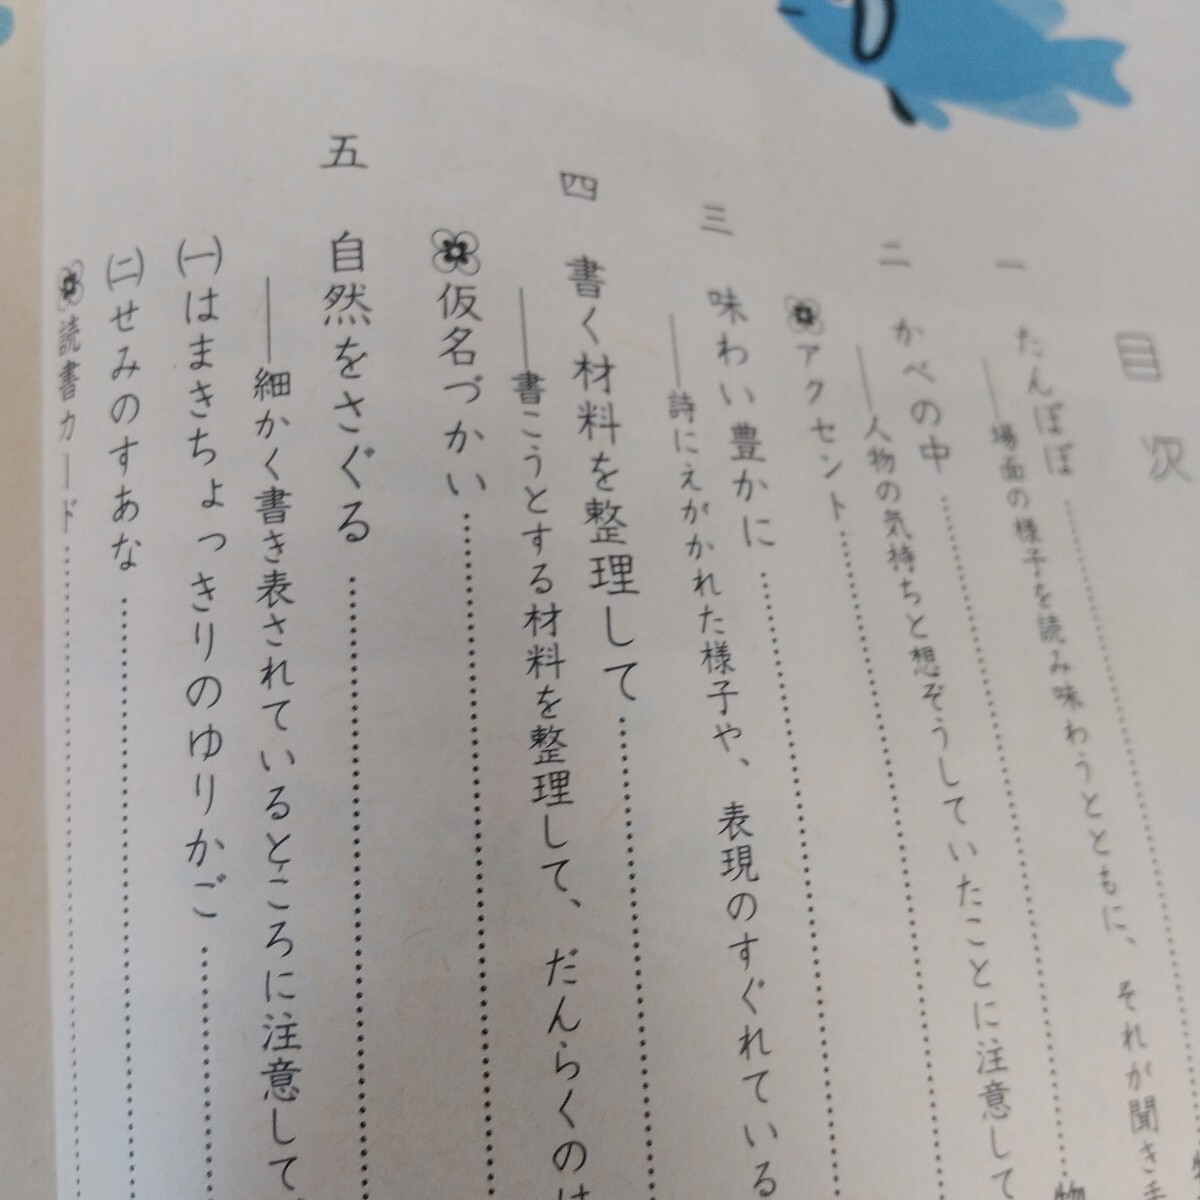 目次
一 たんぽぽ…………
――場面の様子を読み味わうとともに、それが聞き手
二 かべの中…………
――人物の気持ちと想ぞうしていたことに注意して
アクセント…………
三 味わい豊かに…………
――詩にえがかれた様子や、表現のすぐれている
四 書く材料を整理して…………
――書こうとする材料を整理して、だんらくのは
仮名づかい…………
五 自然をさぐる…………
――細かく書き表されているところに注意して、
㈠はまきちょっきりのゆりかご…………
㈡せみのすあな…………
読書カード…………